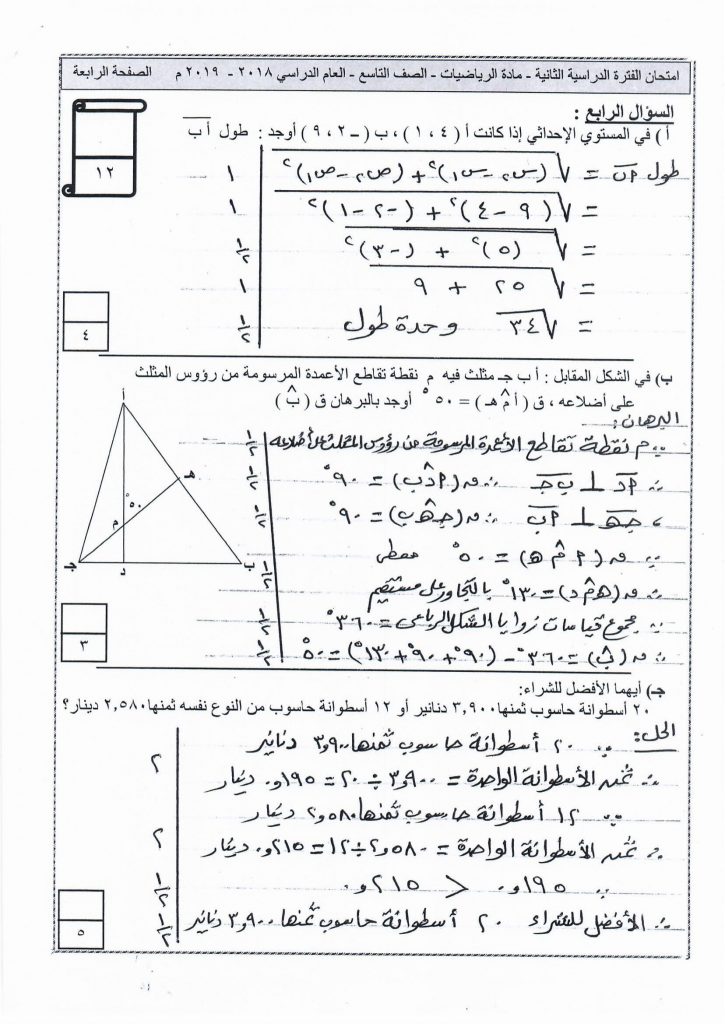 امتحان الفترة الدراسية الثانية - مادة الرياضيات - الصف التاسع - العام الدراسي ٢٠١٨ - ٢٠١٩ م الصفحة الرابعة
السؤال الرابع :
١٢
أ ) في المستوي الإحداثي إذا كانت أ ( ٤ ، ١ ) ، ب ( - ٢ ، ٩ ) أوجد : طول أ ب
طول أب = √(س٢ - س١)٢ + (ص٢ - ص١)٢ ١
= √(٩ - ٤)٢ + (-٢ - ١)٢ ١
= √(٥)٢ + (-٣)٢ ١/٢
= √٢٥ + ٩ ١
= √٣٤ وحدة طول ١/٢
٤
ب) في الشكل المقابل : أ ب جـ مثلث فيه م نقطة تقاطع الأعمدة المرسومة من رؤوس المثلث
على أضلاعه ، ق ( أ م هـ ) = ٥٠° أوجد بالبرهان ق ( ب )
البرهان :
∵ م نقطة تقاطع الأعمدة المرسومة من رؤوس المثلث على أضلاعه ١/٢
∴ أد ⊥ ب جـ ∴ ق (أ د ب) = ٩٠° ١/٢
، جـ هـ ⊥ أب ∴ ق (جـ هـ ب) = ٩٠° ١/٢
∵ ق (أ م هـ) = ٥٠° معطى
∴ ق (هـ م د) = ١٣٠° بالتجاور على مستقيم ١/٢
∵ مجموع قياسات زوايا الشكل الرباعي = ٣٦٠° ١/٢
∴ ق (ب) = ٣٦٠° - (٩٠° + ٩٠° + ١٣٠°) = ٥٠° ١/٢
أ
هـ
٥٠°
م
جـ
د
ب
٣
جـ) أيهما الأفضل للشراء:
٢٠ أسطوانة حاسوب ثمنها ٣,٩٠٠ دنانير أو ١٢ أسطوانة حاسوب من النوع نفسه ثمنها ٢,٥٨٠ دينار؟
الحل :
∵ ٢٠ أسطوانة حاسوب ثمنها ٣,٩٠٠ دنانير
∴ ثمن الأسطوانة الواحدة = ٣,٩٠٠ ÷ ٢٠ = ٠,١٩٥ دينار ٢
∵ ١٢ أسطوانة حاسوب ثمنها ٢,٥٨٠ دينار
∴ ثمن الأسطوانة الواحدة = ٢,٥٨٠ ÷ ١٢ = ٠,٢١٥ دينار ٢
∵ ٠,١٩٥ < ٠,٢١٥ ١/٢
∴ الأفضل للشراء ٢٠ أسطوانة حاسوب ثمنها ٣,٩٠٠ دنانير ١/٢
٥